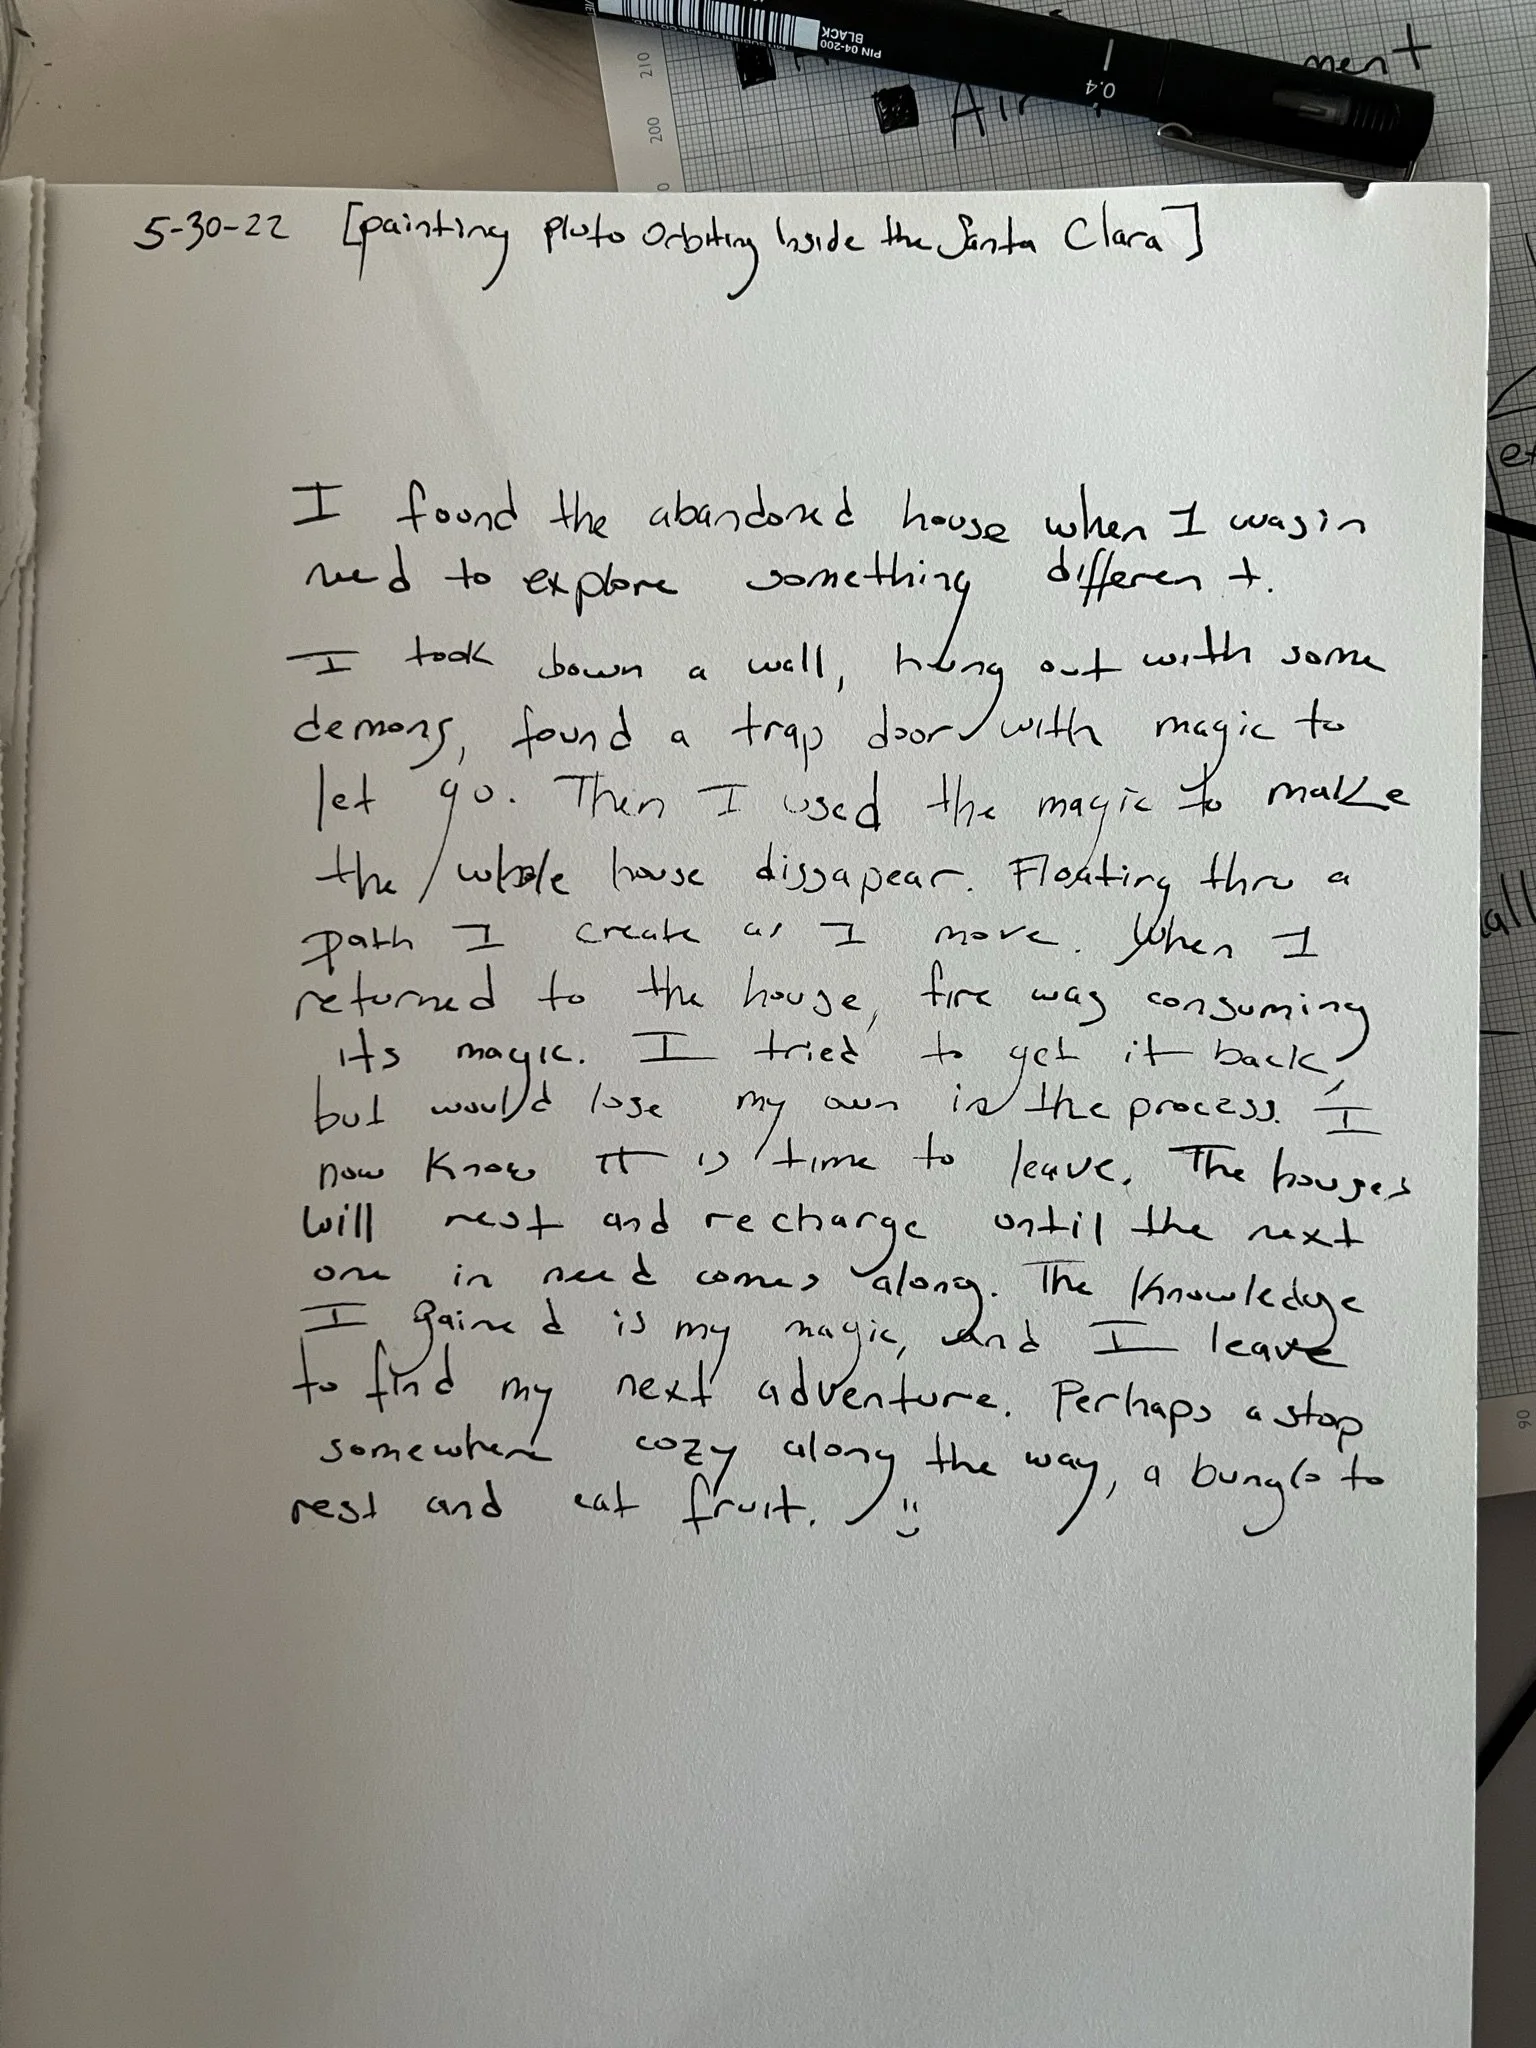 PIN 04-200
BLACK
0.4
ment
Air
210
200
5-30-22 [painting pluto Orbiting Inside the Santa Clara]
I found the abandoned house when I was in
need to explore something different.
I took down a wall, hung out with some
demons, found a trap door with magic to
let go. Then I used the magic to make
the whole house dissapear. Floating thru a
path I create as I move. When I
returned to the house, fire was consuming
its magic. I tried to get it back,
but would lose my own in the process. I
now know it is time to leave. The houses
will rest and recharge until the next
one in need comes along. The Knowledge
I gained is my magic, and I leave
to find my next adventure. Perhaps a stop
somewhere cozy along the way, a bunglo to
rest and eat fruit. :)
all
90